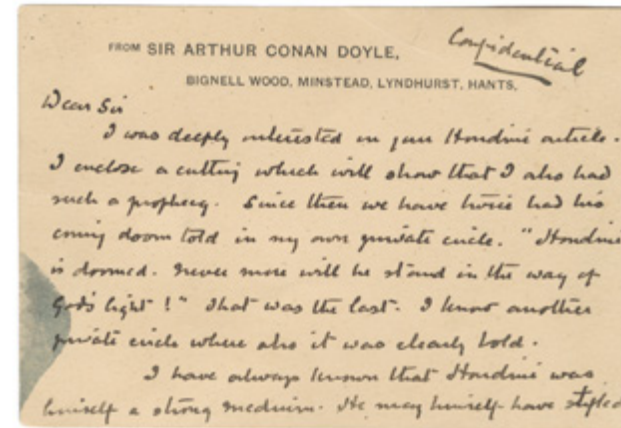 Confidential
FROM SIR ARTHUR CONAN DOYLE,
BIGNELL WOOD, MINSTEAD, LYNDHURST, HANTS.
Dear Sir
I was deeply interested in your Houdini article.
I enclose a cutting which will show that I also had
such a prophecy. Since then we have twice had his
coming doom told in my own private circle. "Houdini
is doomed. Never more will he stand in the way of
God's light!" That was the last. I know another
private circle where also it was clearly told.
I have always known that Houdini was
himself a strong medium. He may himself have stifled